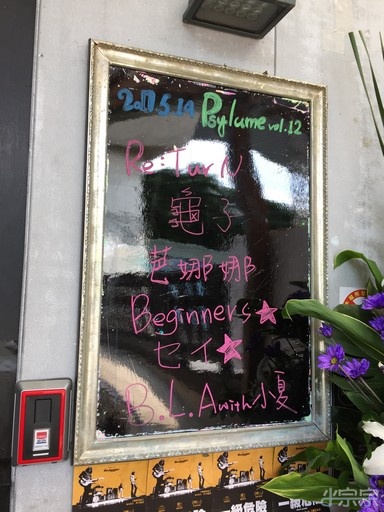 2017.5.14 Psylume vol.12
Re:TurN
龜子
芭娜娜
Beginners★
セイ★
B.L.A with 小夏